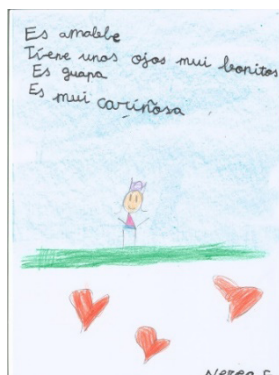 Es amable
Tiene unos ojos mui bonitos
Es guapa
Es mui cariñosa
Nerea F